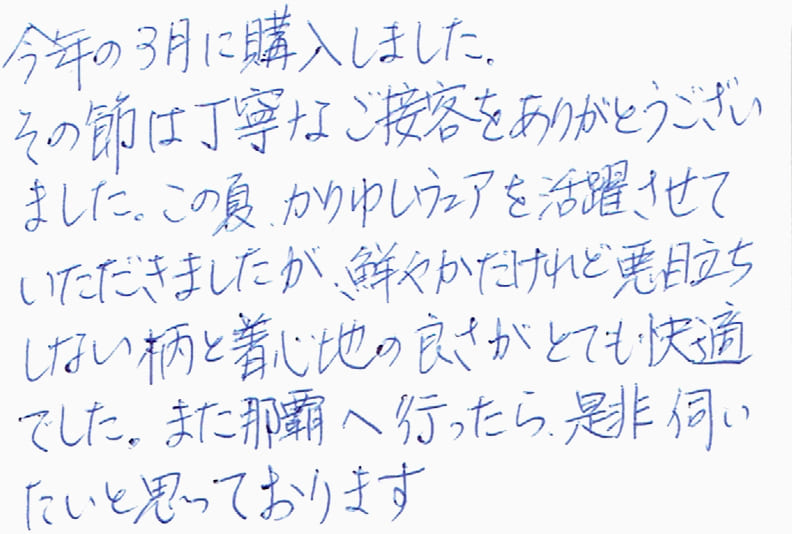 今年の3月に購入しました。
その節は丁寧なご接客をありがとうござい
ました。この夏、かりゆしウェアを活躍させて
いただきましたが、鮮やかだけれど悪目立ち
しない柄と着心地の良さがとても快適
でした。また那覇へ行ったら、是非伺い
たいと思っております